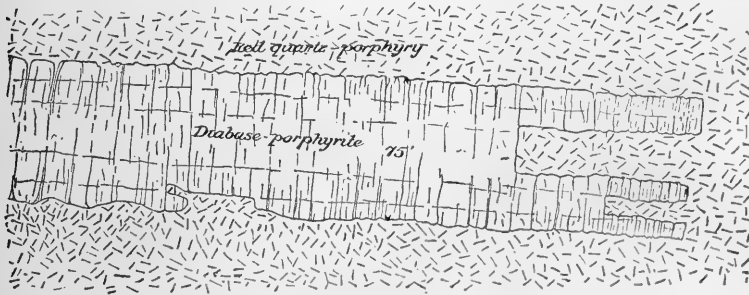 quartz-porphyry
Diabase-porphyrite 75'